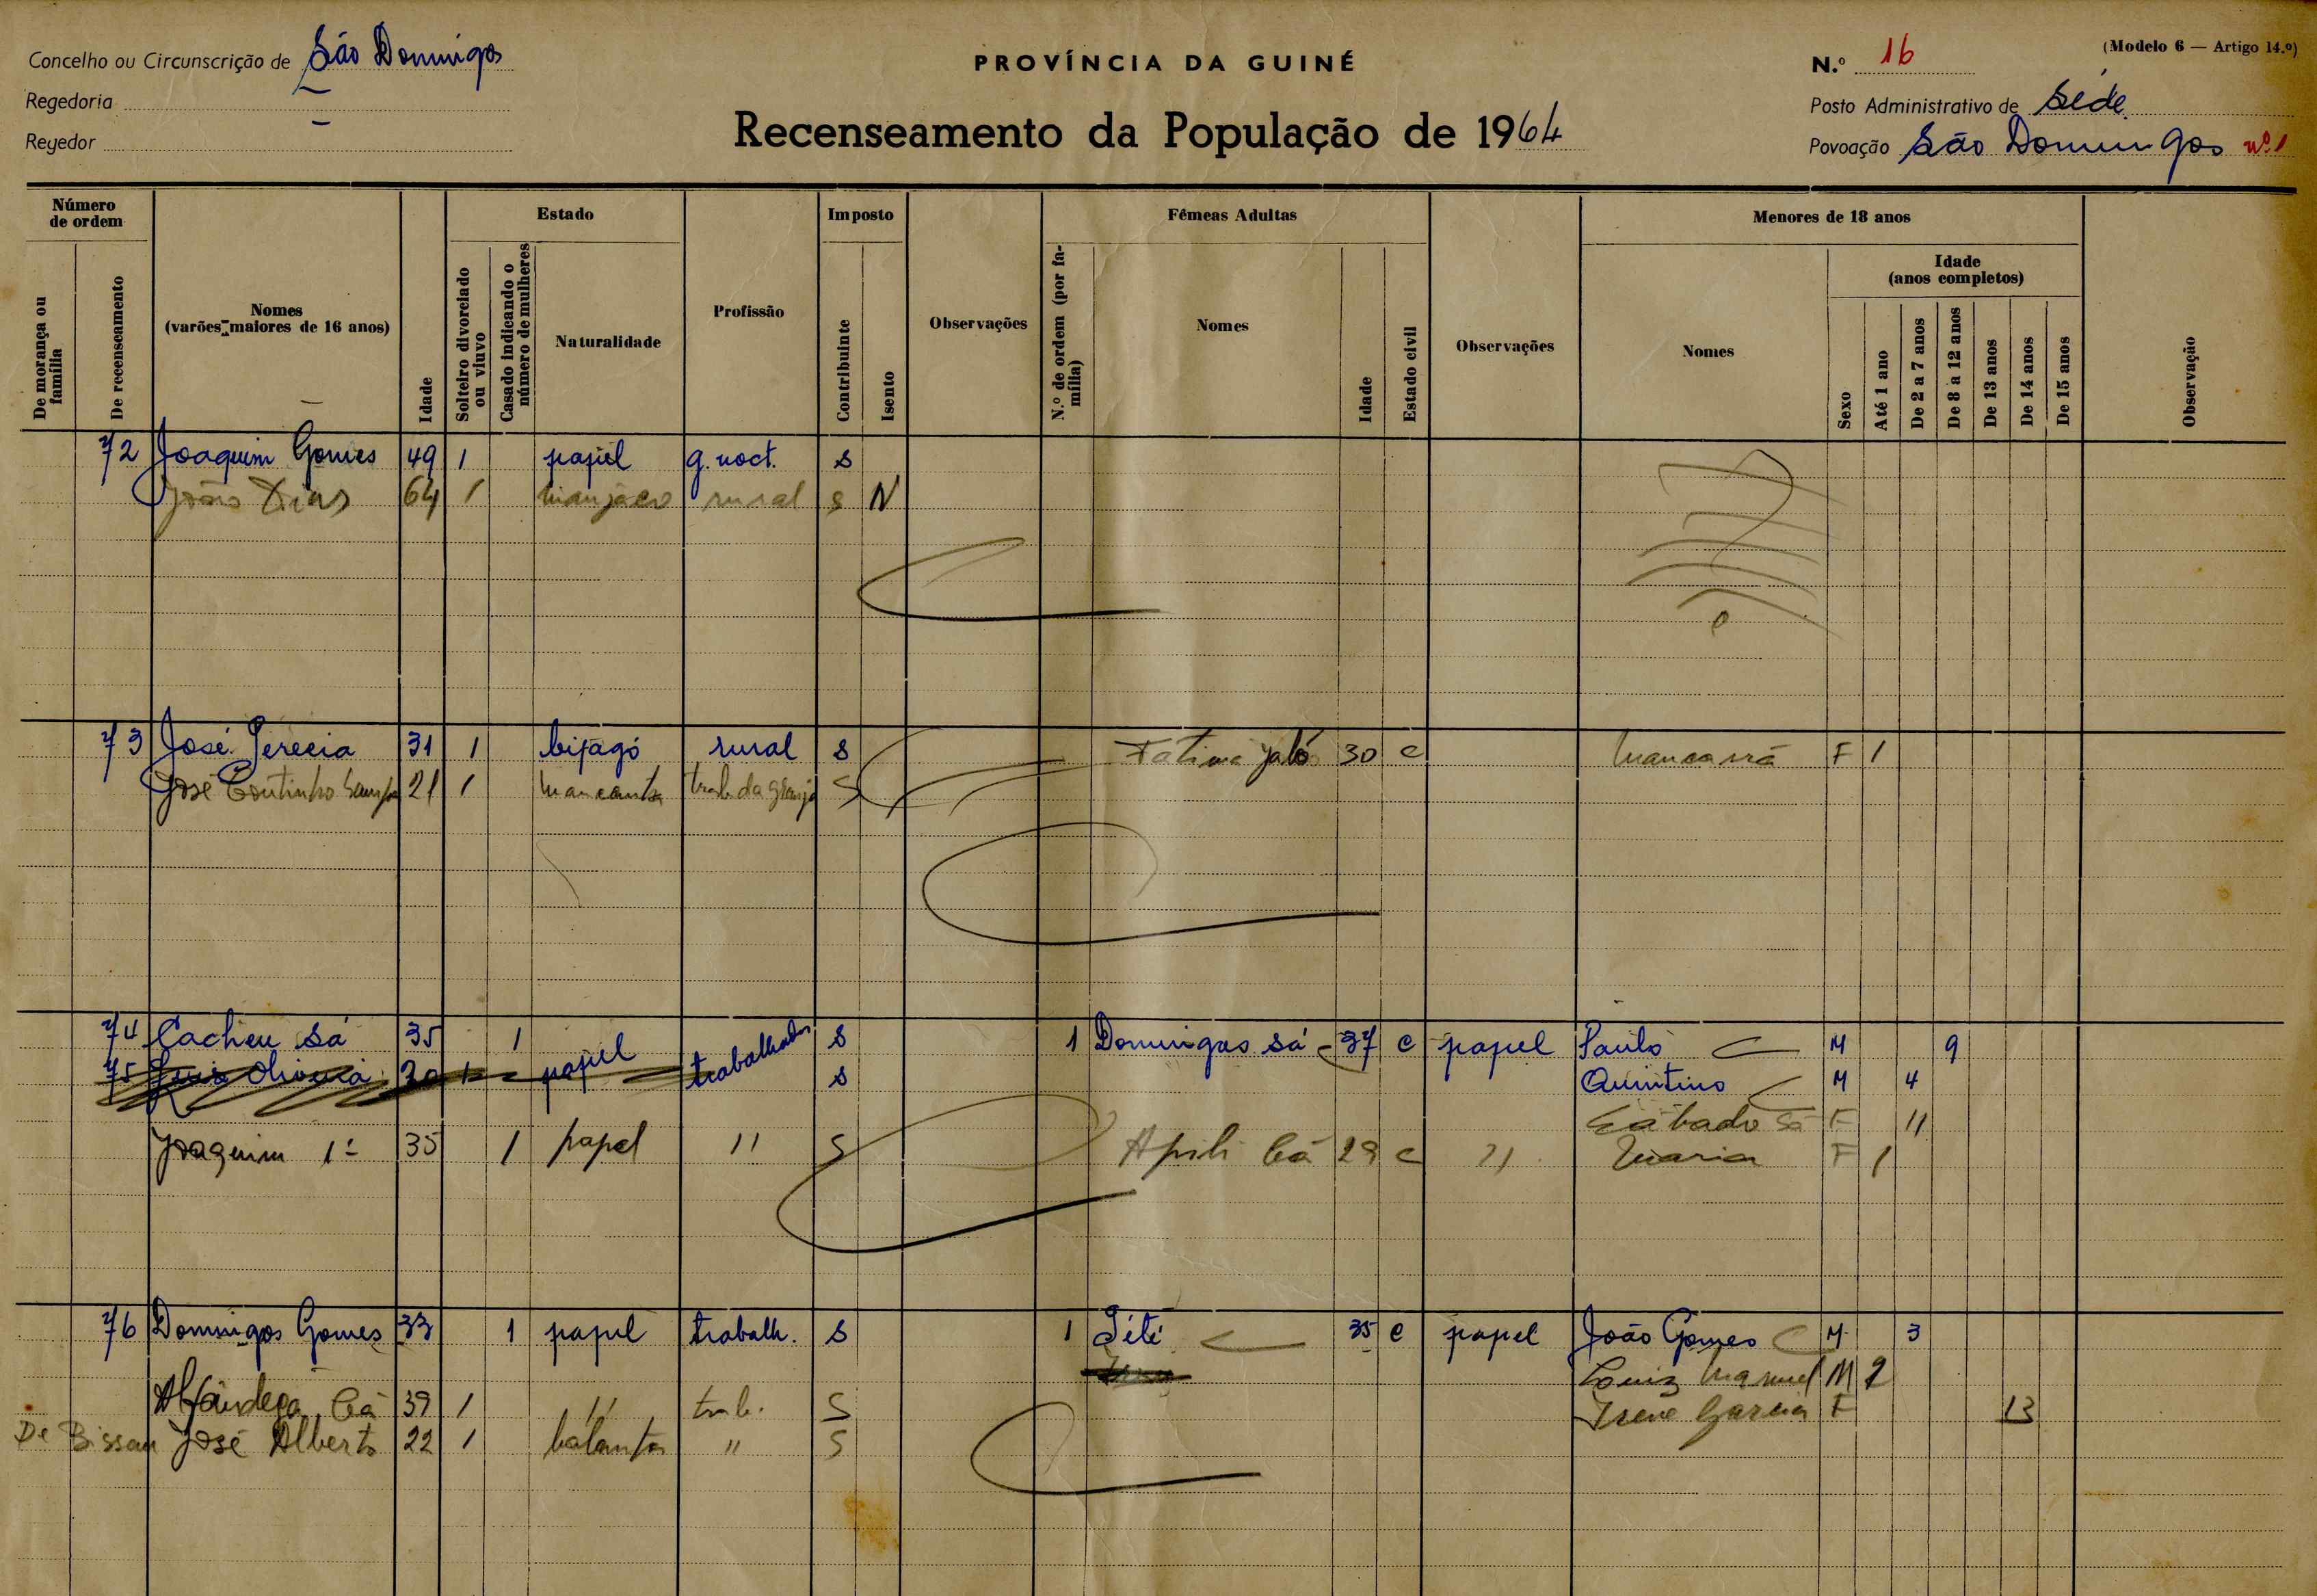 Concelho ou Circunscrição de São Domingos
PROVÍNCIA DA GUINÉ
N.º 16
(Modelo 6 — Artigo 14.º)
Regedoria —
Regedor —
Recenseamento da População de 1964
Posto Administrativo de Séde
Povoação São Domingos nº 1
Número de ordem
De morança ou família
De recenseamento
Nomes (varões maiores de 16 anos)
Idade
Estado
Solteiro divorciado ou viuvo
Casado indicando o número de mulheres
Naturalidade
Profissão
Imposto
Contribuinte
Isento
Observações
Fêmeas Adultas
N.º de ordem (por família)
Nomes
Idade
Estado civil
Observações
Menores de 18 anos
Nomes
Sexo
Idade (anos completos)
Até 1 ano
De 2 a 7 anos
De 8 a 12 anos
De 13 anos
De 14 anos
De 15 anos
Observação
72 Joaquim Gomes 49 1 papel g. noct. s
João Dias 64 1 manjaco rural s N
73 José Pereira 31 1 bijagó rural s Fatima Jaló 30 c F 1
José Coutinho 21 1 mancanha trab. da granja S
74 Cacheu Sá 35 1 papel trabalhador s 1 Domingas Sá 37 c papel Paulo M 9
75 Luis Oliveira 30 1 s Quintino M 4
Sabado Sá F 11
Joaquim 1º 35 1 papel 11 S Cá 29 c 11 Maria F 1
76 Domingos Gomes 33 1 papel trabalh. s 1 Tété 35 c papel João Gomes M 3
Luiz Manuel M 2
Alfandega Cá 39 1 11 trab. S Irene Garcia F 13
De Bissau José Alberto 22 1 balanta " S